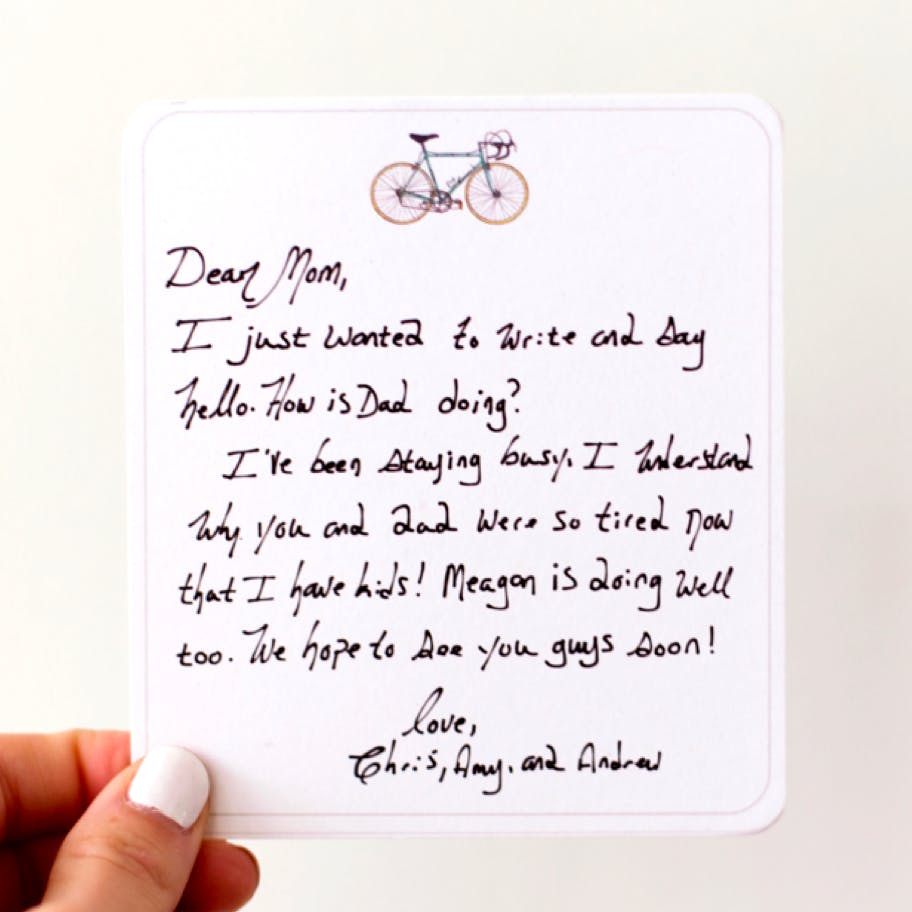 Dear Mom,
I just wanted to write and say
hello. How is Dad doing?
I've been staying busy. I understand
why you and dad were so tired now
that I have kids! Meagan is doing well
too. We hope to see you guys soon!
love,
Chris, Amy, and Andrew